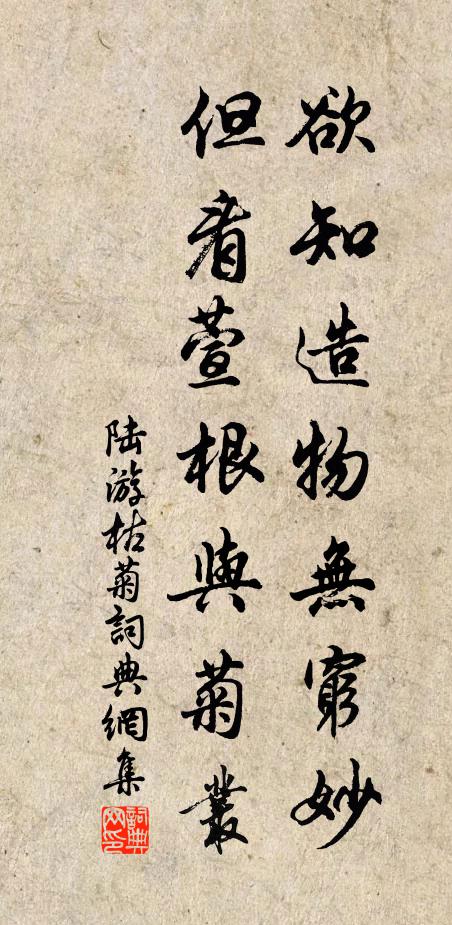 欲知造物無窮妙
但看萱根與菊叢
陸游枯菊詞典網集
詞典網印